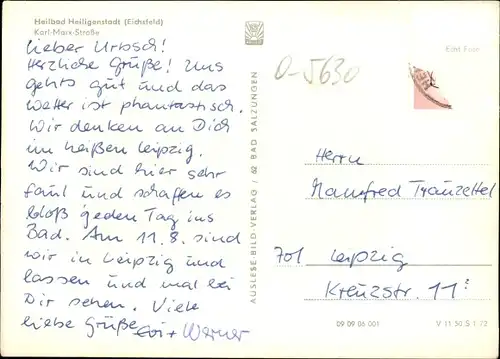 Heilbad Heiligenstadt (Eichsfeld)
Karl-Marx-Straße
lieber Urbsch!
Herzliche Grüße! Uns
gehts gut und das
Wetter ist phantastisch.
Wir denken an Dich
im heißen Leipzig.
Wir sind hier sehr
faul und schaffen es
bloß jeden Tag ins
Bad. Am 11.8. sind
wir in Leipzig und
lassen uns mal bei
Dir sehen. Viele
liebe Grüße Evi + Werner
AUSLESE-BILD-VERLAG / 62 BAD SALZUNGEN
Echt Foto
O-5630
Herrn
Manfred Tranzettel
701 Leipzig
Kreuzstr. 11
09 09 06 001
V 11 50 S 1 72